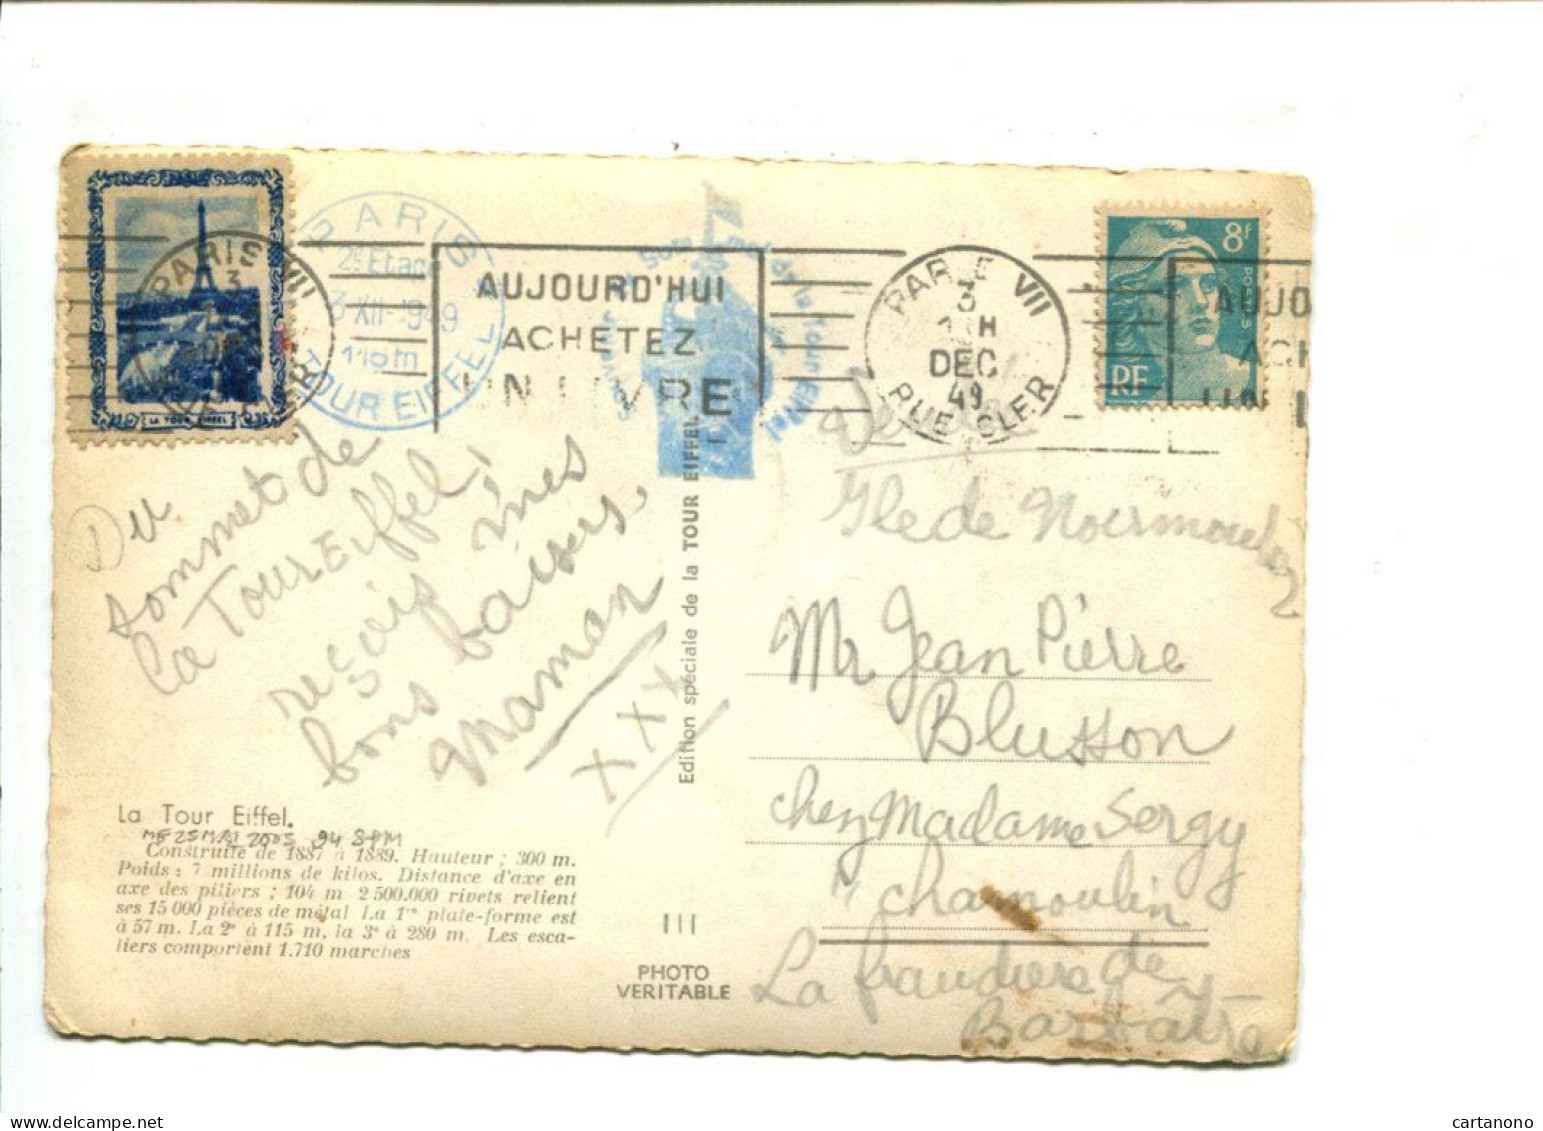 LA TOUR EIFFEL
PARIS VII
3
PARIS
2e Etage
3-XII-1949
116m
TOUR EIFFEL
AUJOURD'HUI
ACHETEZ
UN LIVRE
PARIS VII
3
H
DEC
49
RUE CLER
8F
POSTES
RF
AUJO
ACH
UN L
Du
sommet de
la Tour Eiffel,
resois mes
bons baisers.
Maman
XXX
Edition spéciale de la TOUR EIFFEL
Vendée
Ile de Noirmoutier
Mr Jean Pierre
Blusson
chez Madame Sergy
chamoulin
La frandiere de
Barbâtre
La Tour Eiffel.
25 MAI 2005 94 SPM
Construite de 1887 à 1889. Hauteur ; 300 m.
Poids : 7 millions de kilos. Distance d'axe en
axe des piliers ; 104 m 2 500.000 rivets relient
ses 15 000 pièces de métal La 1re plate-forme est
à 57 m. La 2e à 115 m, la 3e à 280 m. Les esca-
liers comportent 1.710 marches
III
PHOTO
VERITABLE
delcampe.net
cartanono